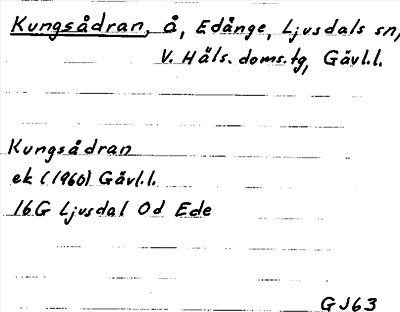 Kungsådran, å, Edånge, Ljusdals sn,
V. Häls. doms.tg, Gävl.l.
Kungsådran
ek (1960) Gävl.l.
16G Ljusdal Od Ede
GJ63